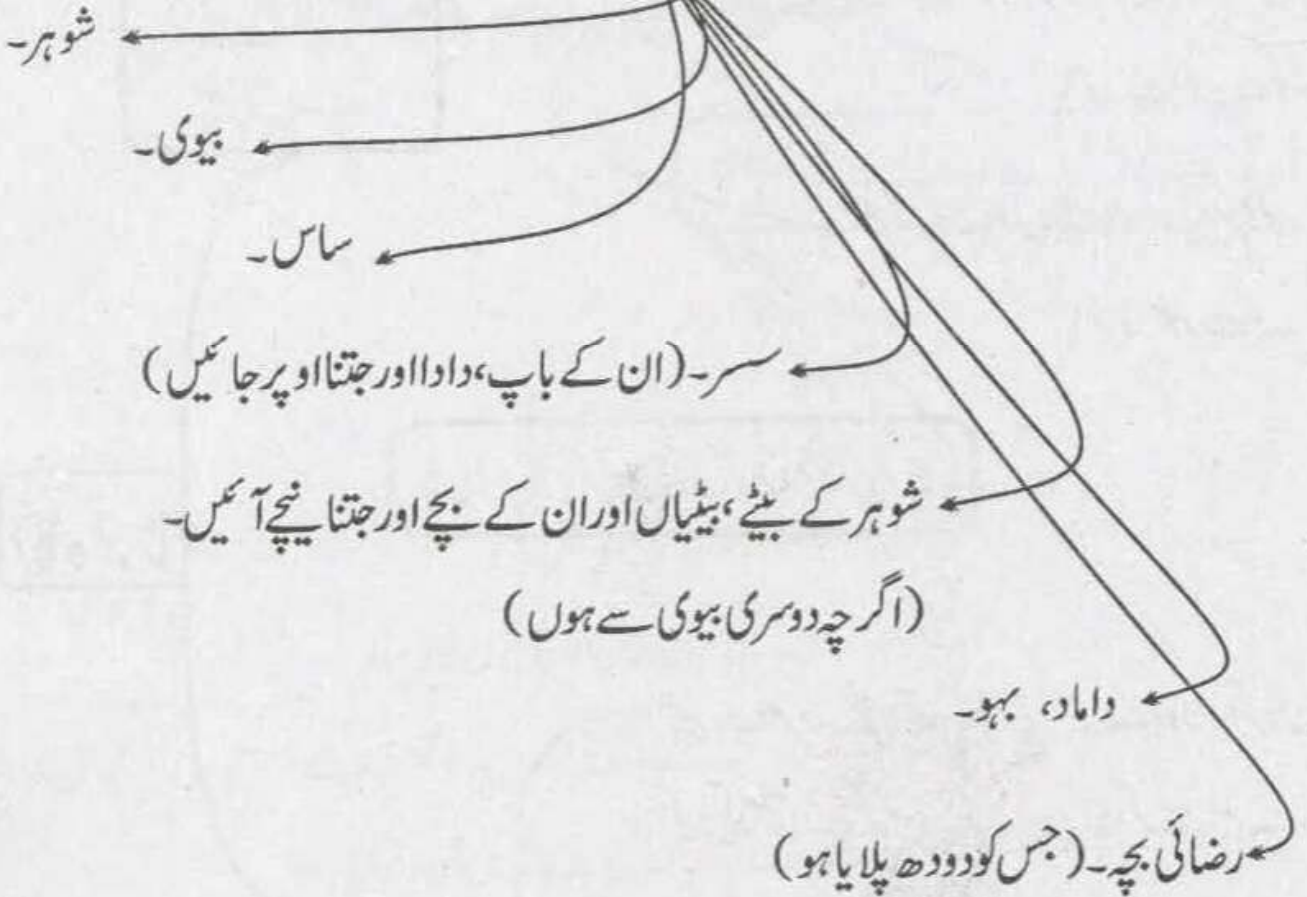 شوہر۔
بیوی۔
ساس۔
سسر۔ (ان کے باپ، دادا اور جتنا اوپر جائیں)
شوہر کے بیٹے، بیٹیاں اور ان کے بچے اور جتنا نیچے آئیں۔
(اگر چہ دوسری بیوی سے ہوں)
داماد، بہو۔
رضائی بچہ۔ (جس کو دودھ پلایا ہو)